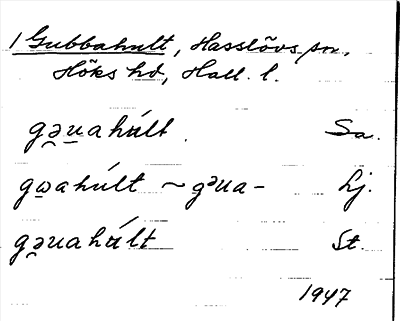 1 Gubbahult, Hasslövs sn,
Höks hd, Hall. l.
gə̯u̲ahúlt. Sa.
gω̲ahúlt ~ gᵊua- Lj.
gə̯uahúlt St.
1947